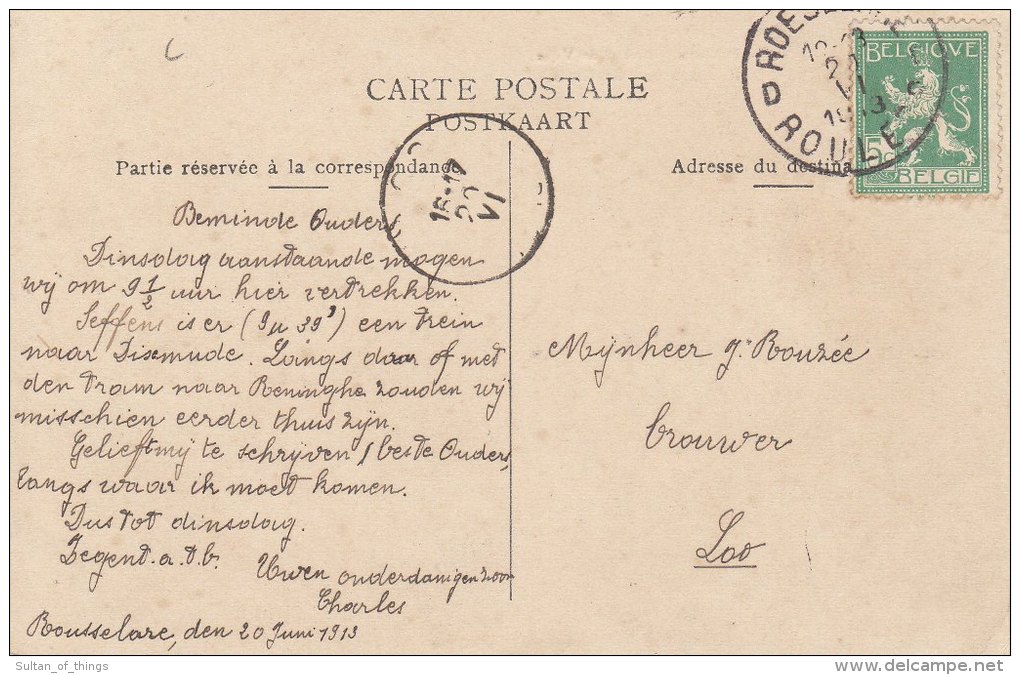 CARTE POSTALE
POSTKAART
Partie réservée à la correspondance
Adresse du destina
BELGIQUE
5
BELGIE
ROESEL
20
VI
1913
ROULE
16-17
20
VI
Beminde Ouders,
Dinsdag aanstaande mogen
wij om 9 1/2 uur hier vertrekken.
Seffens is er (9u 39') een trein
naar Dixmude. Laings daar of met
den tram naar Reninghe zouden wij
misschien eerder thuis zijn.
Gelieft mij te schrijven, beste Ouders,
langs waar ik moet komen.
Dus tot dinsdag.
Zegent. a. t. b.
Uwen onderdanigen zoon
Charles
Rousselare, den 20 Juni 1913
Mijnheer J. Bouzée
brouwer
Loo
Sultan_of_things
delcampe.net